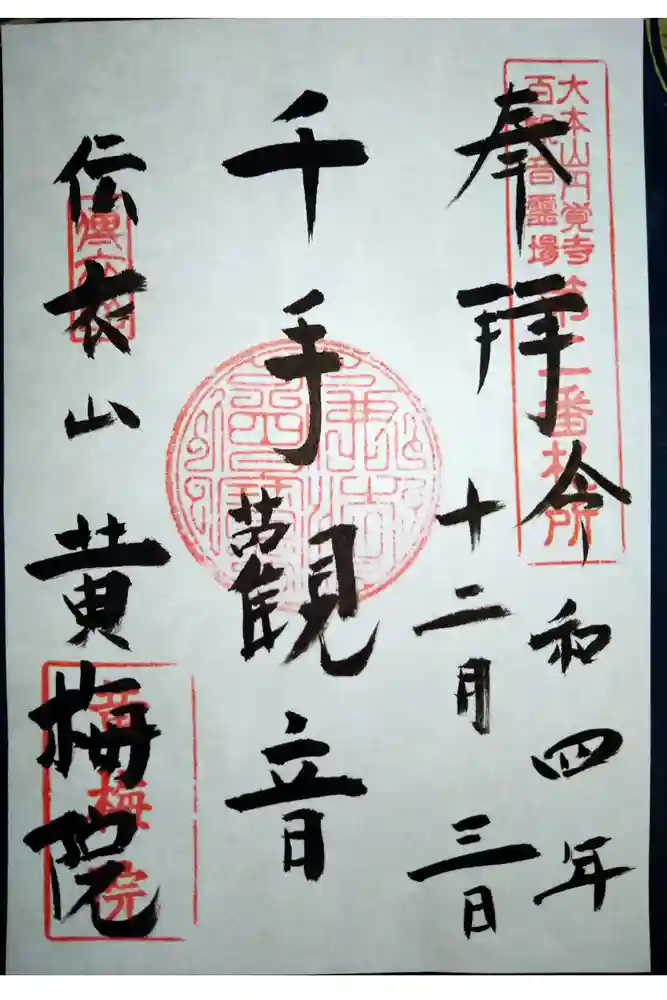 大本山円覚寺
百観音霊場 第二番札所
奉拜
令和四年
十二月三日
千手觀音
伝衣山 黄梅院
黄梅院